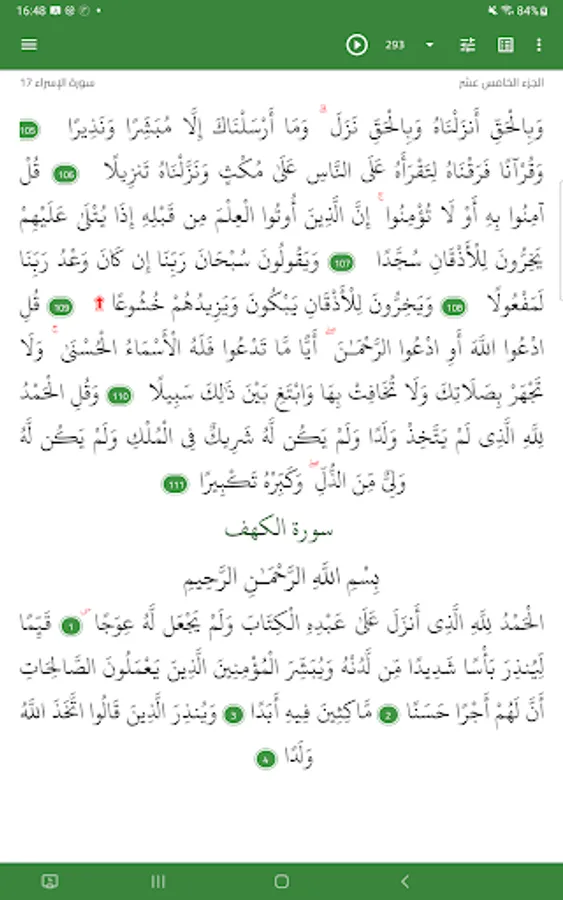 16:48
84%
293
سورة الإسراء 17
الجزء الخامس عشر
وَبِالْحَقِّ أَنزَلْنَاهُ وَبِالْحَقِّ نَزَلَ ۗ وَمَا أَرْسَلْنَاكَ إِلَّا مُبَشِّرًا وَنَذِيرًا 105
وَقُرْآنًا فَرَقْنَاهُ لِتَقْرَأَهُ عَلَى النَّاسِ عَلَىٰ مُكْثٍ وَنَزَّلْنَاهُ تَنزِيلًا 106 قُلْ
آمِنُوا بِهِ أَوْ لَا تُؤْمِنُوا ۚ إِنَّ الَّذِينَ أُوتُوا الْعِلْمَ مِن قَبْلِهِ إِذَا يُتْلَىٰ عَلَيْهِمْ
يَخِرُّونَ لِلْأَذْقَانِ سُجَّدًا 107 وَيَقُولُونَ سُبْحَانَ رَبِّنَا إِن كَانَ وَعْدُ رَبِّنَا
لَمَفْعُولًا 108 وَيَخِرُّونَ لِلْأَذْقَانِ يَبْكُونَ وَيَزِيدُهُمْ خُشُوعًا ۩ 109 قُلِ
ادْعُوا اللَّهَ أَوِ ادْعُوا الرَّحْمَـٰنَ ۖ أَيًّا مَّا تَدْعُوا فَلَهُ الْأَسْمَاءُ الْحُسْنَىٰ ۚ وَلَا
تَجْهَرْ بِصَلَاتِكَ وَلَا تُخَافِتْ بِهَا وَابْتَغِ بَيْنَ ذَٰلِكَ سَبِيلًا 110 وَقُلِ الْحَمْدُ
لِلَّهِ الَّذِي لَمْ يَتَّخِذْ وَلَدًا وَلَمْ يَكُن لَّهُ شَرِيكٌ فِي الْمُلْكِ وَلَمْ يَكُن لَّهُ
وَلِيٌّ مِّنَ الذُّلِّ ۖ وَكَبِّرْهُ تَكْبِيرًا 111
سورة الكهف
بِسْمِ اللَّهِ الرَّحْمَـٰنِ الرَّحِيمِ
الْحَمْدُ لِلَّهِ الَّذِي أَنزَلَ عَلَىٰ عَبْدِهِ الْكِتَابَ وَلَمْ يَجْعَل لَّهُ عِوَجًا ۜ 1 قَيِّمًا
لِّيُنذِرَ بَأْسًا شَدِيدًا مِّن لَّدُنْهُ وَيُبَشِّرَ الْمُؤْمِنِينَ الَّذِينَ يَعْمَلُونَ الصَّالِحَاتِ
أَنَّ لَهُمْ أَجْرًا حَسَنًا 2 مَّاكِثِينَ فِيهِ أَبَدًا 3 وَيُنذِرَ الَّذِينَ قَالُوا اتَّخَذَ اللَّهُ
وَلَدًا 4